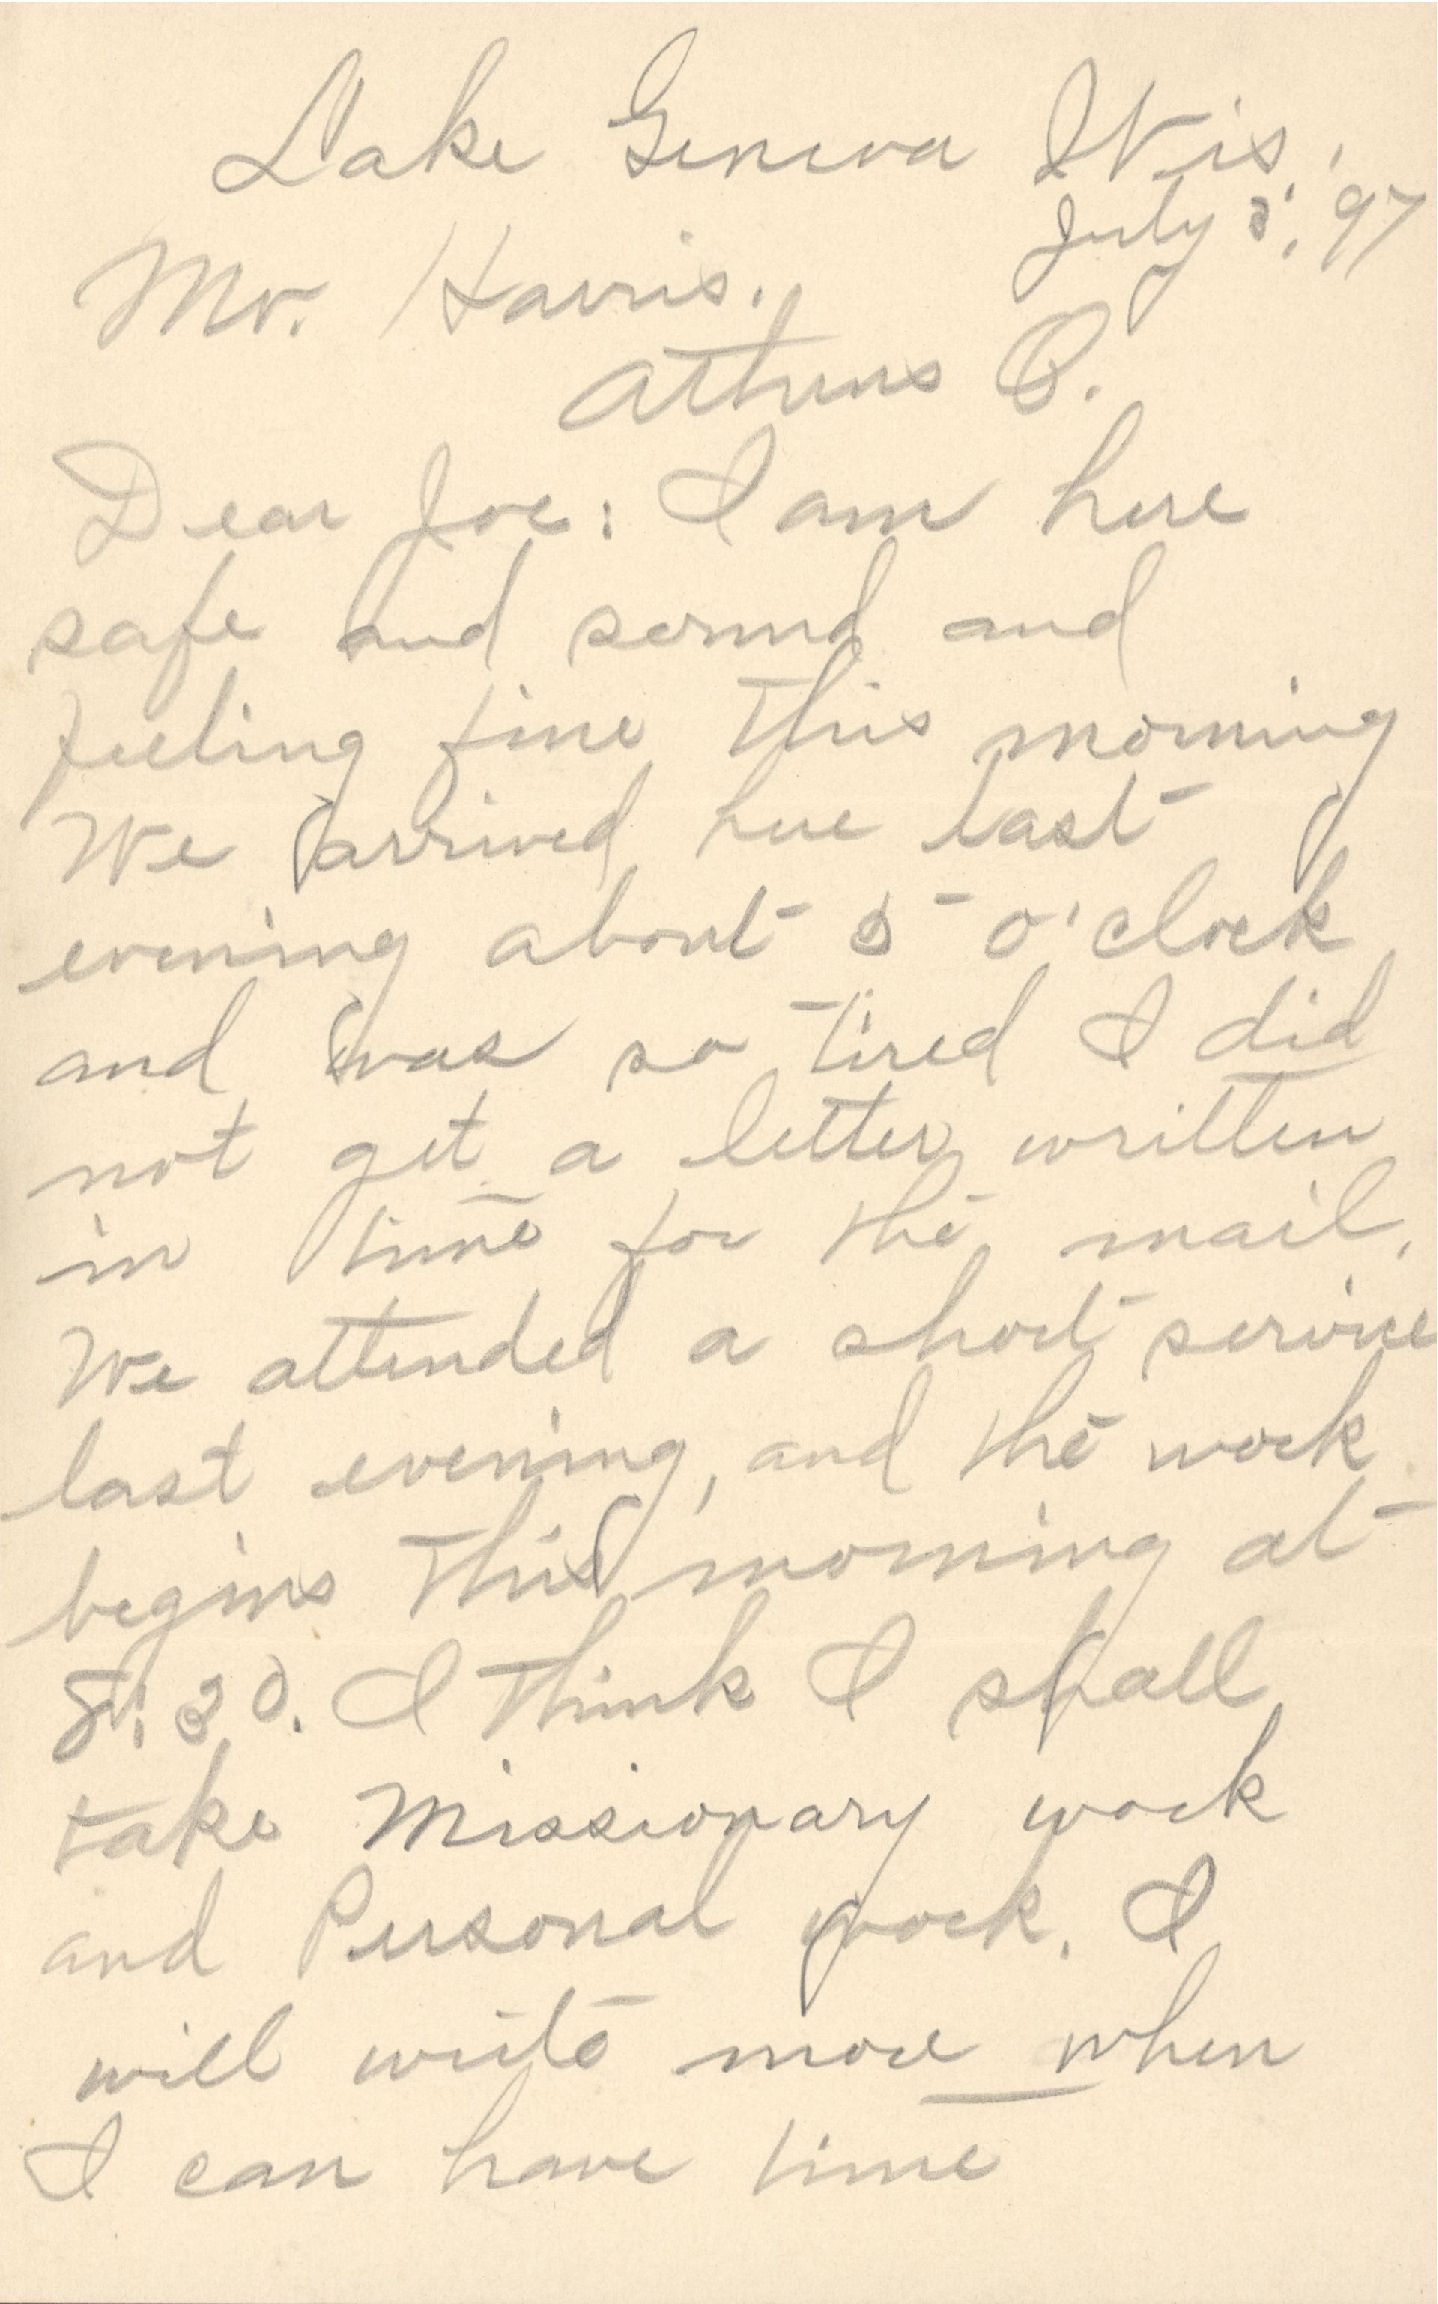 Lake Geneva Wis.
July 3, 97
Mr. Harris.
Athens O.
Dear Joe: I am here
safe and sound and
feeling fine this morning
We arrived here last
evening about 5 o'clock
and was so tired I did
not get a letter written
in time for the mail.
We attended a short service
last evening, and the work
begins this morning at
8:30. I think I shall
take Missionary work
and Personal work. I
will write more when
I can have time